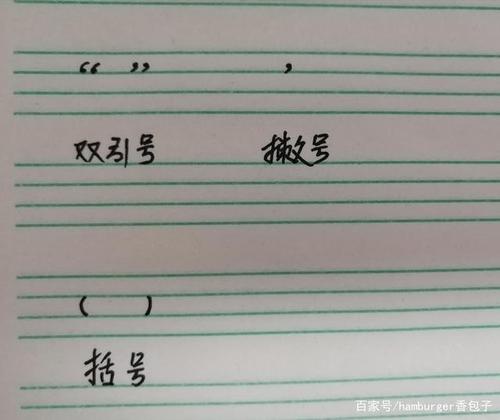 “ ” ’
双引号 撇号
( )
括号
百家号/hamburger香包子